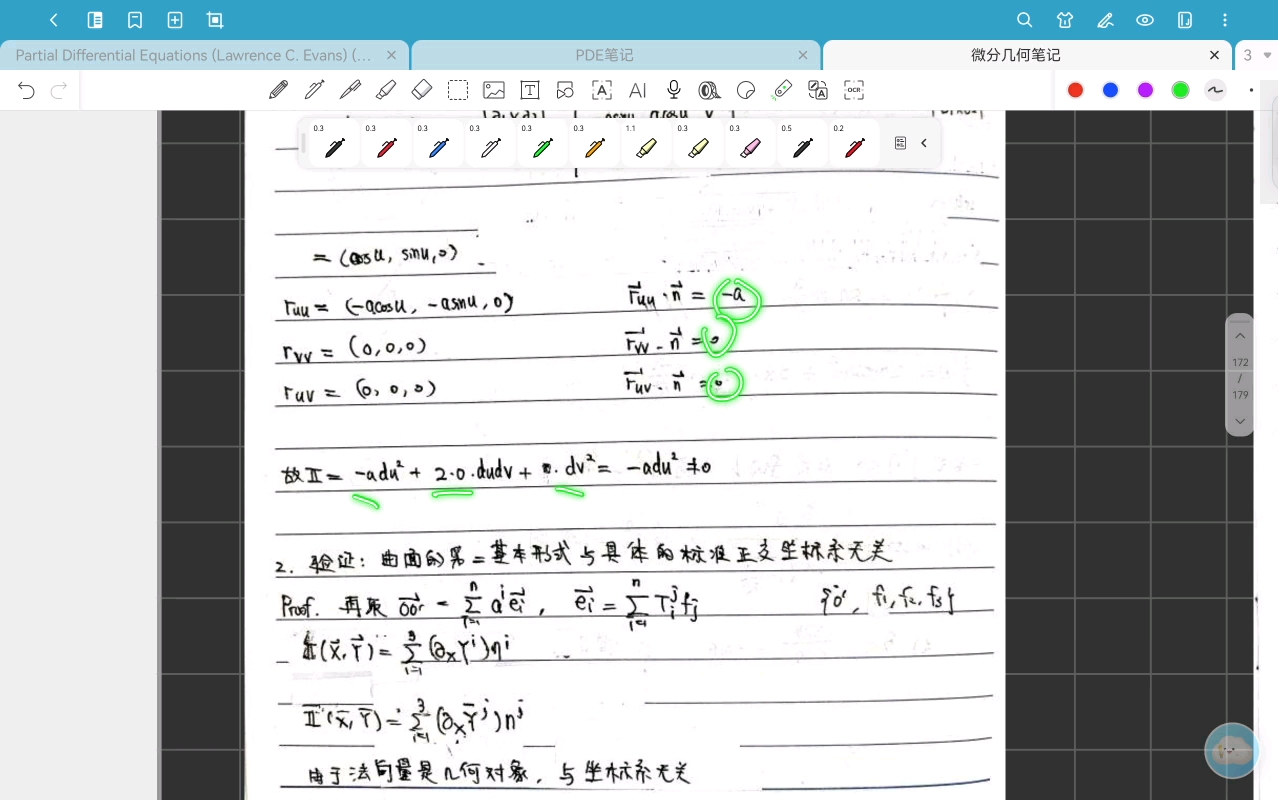 Partial Differential Equations (Lawrence C. Evans) (... × PDE笔记 × 微分几何笔记 × 3
T A AI OCR
0.3 0.3 0.3 0.3 0.3 0.3 1.1 0.3 0.3 0.5 0.2
= (cosu, sinu, 0)
r_uu = (-acosu, -asinu, 0) \vec{r}_uu · \vec{n} = -a
r_vv = (0, 0, 0) \vec{r}_vv · \vec{n} = 0
r_uv = (0, 0, 0) \vec{r}_uv · \vec{n} = 0
172
/
179
故Ⅱ = -adu² + 2·0·dudv + 0·dv² = -adu² ≠0
2. 验证: 曲面的第二基本形式与具体的标准正交坐标系无关
Proof. 再取 \vec{oo'} = \sum_{i=1}^{n} a^i \vec{e_i}, \vec{e_i} = \sum_{i=1}^{n} T_i^j f_j {o', f_1, f_2, f_3}
Ⅱ(\vec{X}, \vec{Y}) = \sum_{i=1}^{3} (∂_X Y^i) n^i
\overline{Ⅱ}(\overline{X}, \overline{Y}) = \sum_{i=1}^{3} (∂_X \overline{Y}^j) n^j
由于法向量是几何对象, 与坐标系无关